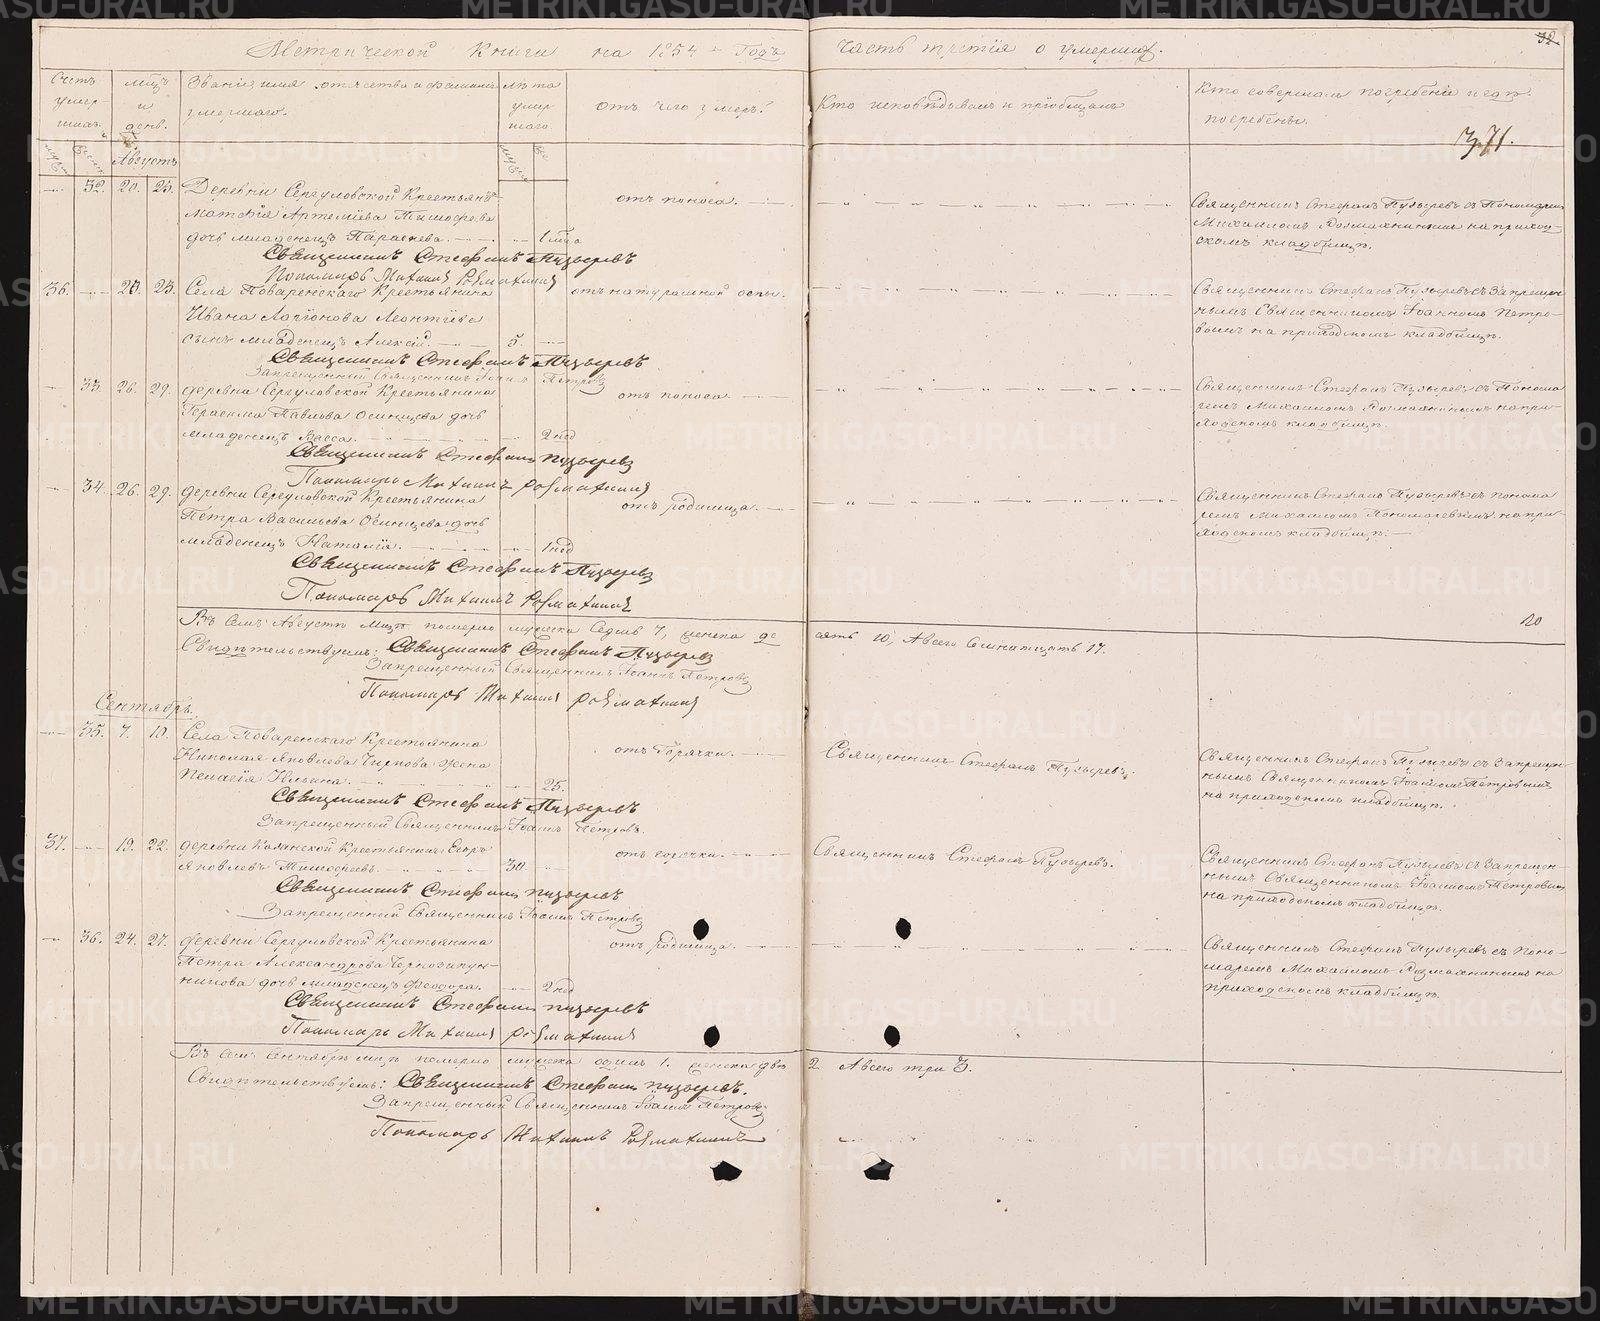 Метрической Книги на 1854 Годъ
Часть третiя о умершихъ.
32
371.
Счетъ умершихъ.
Мѣсяцъ и день.
Званiе, имя, отчество и фамилiя умершаго.
Лѣта умершаго.
отъ чего умеръ?
Кто исповѣдывалъ и прiобщалъ
Кто совершалъ погребенiе и гдѣ погребены.
Августъ
32. 20. 23. Деревни Сергуловской Крестьянъ
Матѳiя Артемiева Тимофеева
дочь младенецъ Параскева. 1
отъ поноса.
Священникъ Стефанъ Пузыревъ съ Пономаремъ
Михаиломъ Розмахнинымъ на приход-
скомъ кладбищѣ.
Священникъ Стефанъ Пузыревъ
Пономарь Михаилъ Розмахнинъ
36. 20. 23. Села Поваренскаго Крестьянина
Ивана Логiонова Леонтiева
сынъ младенецъ Алексiй. 5.
отъ натуральной оспы.
Священникъ Стефанъ Пузыревъ съ Запрещен-
нымъ Священникомъ Iоанномъ Петро-
вымъ на приходскомъ кладбищѣ.
Священникъ Стефанъ Пузыревъ
Запрещенный Священникъ Iоаннъ Петровъ
33. 26. 29. деревни Сергуловской Крестьянина
Герасима Павлова Осинцева дочь
младенецъ Васса. 2 нед
отъ поноса.
Священникъ Стефанъ Пузыревъ съ Понома
ремъ Михаиломъ Розмахнинымъ на при-
ходскомъ кладбищѣ.
Священникъ Стефанъ Пузыревъ
Пономарь Михаилъ Розмахнинъ
34. 26. 29. деревни Сергуловской Крестьянина
Петра Васильева Осинцева дочь
младенецъ Наталiя. 1 нед
отъ родимца.
Священникъ Стефанъ Пузыревъ съ понома
ремъ Михаиломъ Пономаревымъ на при-
ходскомъ кладбищѣ.
Священникъ Стефанъ Пузыревъ
Пономарь Михаилъ Розмахнинъ
20
Въ семъ Августѣ Мцѣ померло мужеска Седмь 7, женска де
сять 10, А всего Семнатцать 17.
Свидѣтельствуемъ: Священникъ Стефанъ Пузыревъ
Запрещенный Священникъ Iоаннъ Петровъ
Пономарь Михаилъ Розмахнинъ
Сентябрь.
35. 7. 10. Села Поваренскаго Крестьянина
Николая Яковлева жена
Пелагiя Ильина. 25.
отъ Горячки.
Священникъ Стефанъ Пузыревъ.
Священникъ Стефанъ Пузыревъ съ Запрещен-
нымъ Священникомъ Iоанномъ Петровымъ
на приходскомъ кладбищѣ.
Священникъ Стефанъ Пузыревъ
Запрещенный Священникъ Iоаннъ Петровъ.
37. 19. 22. деревни Крестьянинъ Егоръ
Яковлевъ Тимофеевъ. 30.
отъ горячки.
Священникъ Стефанъ Пузыревъ.
Священникъ Стефанъ Пузыревъ съ Запрещен-
нымъ Священникомъ Iоанномъ Петровымъ
на приходскомъ кладбищѣ.
Священникъ Стефанъ Пузыревъ
Запрещенный Священникъ Iоаннъ Петровъ
36. 24. 27. деревни Сергуловской Крестьянина
Петра Александрова
дочь младенецъ Феодора. 2 нед
отъ родимца.
Священникъ Стефанъ Пузыревъ съ Поно-
маремъ Михаиломъ Розмахнинымъ на
приходскомъ кладбищѣ.
Священникъ Стефанъ Пузыревъ
Пономарь Михаилъ Розмахнинъ
Въ семъ Сентябрѣ мцѣ померло мужеска одинъ 1. женска двѣ 2 А всего три 3.
Свидѣтельствуемъ: Священникъ Стефанъ Пузыревъ.
Запрещенный Священникъ Iоаннъ Петровъ
Пономарь Михаилъ Розмахнинъ
METRIKI.GASO-URAL.RU